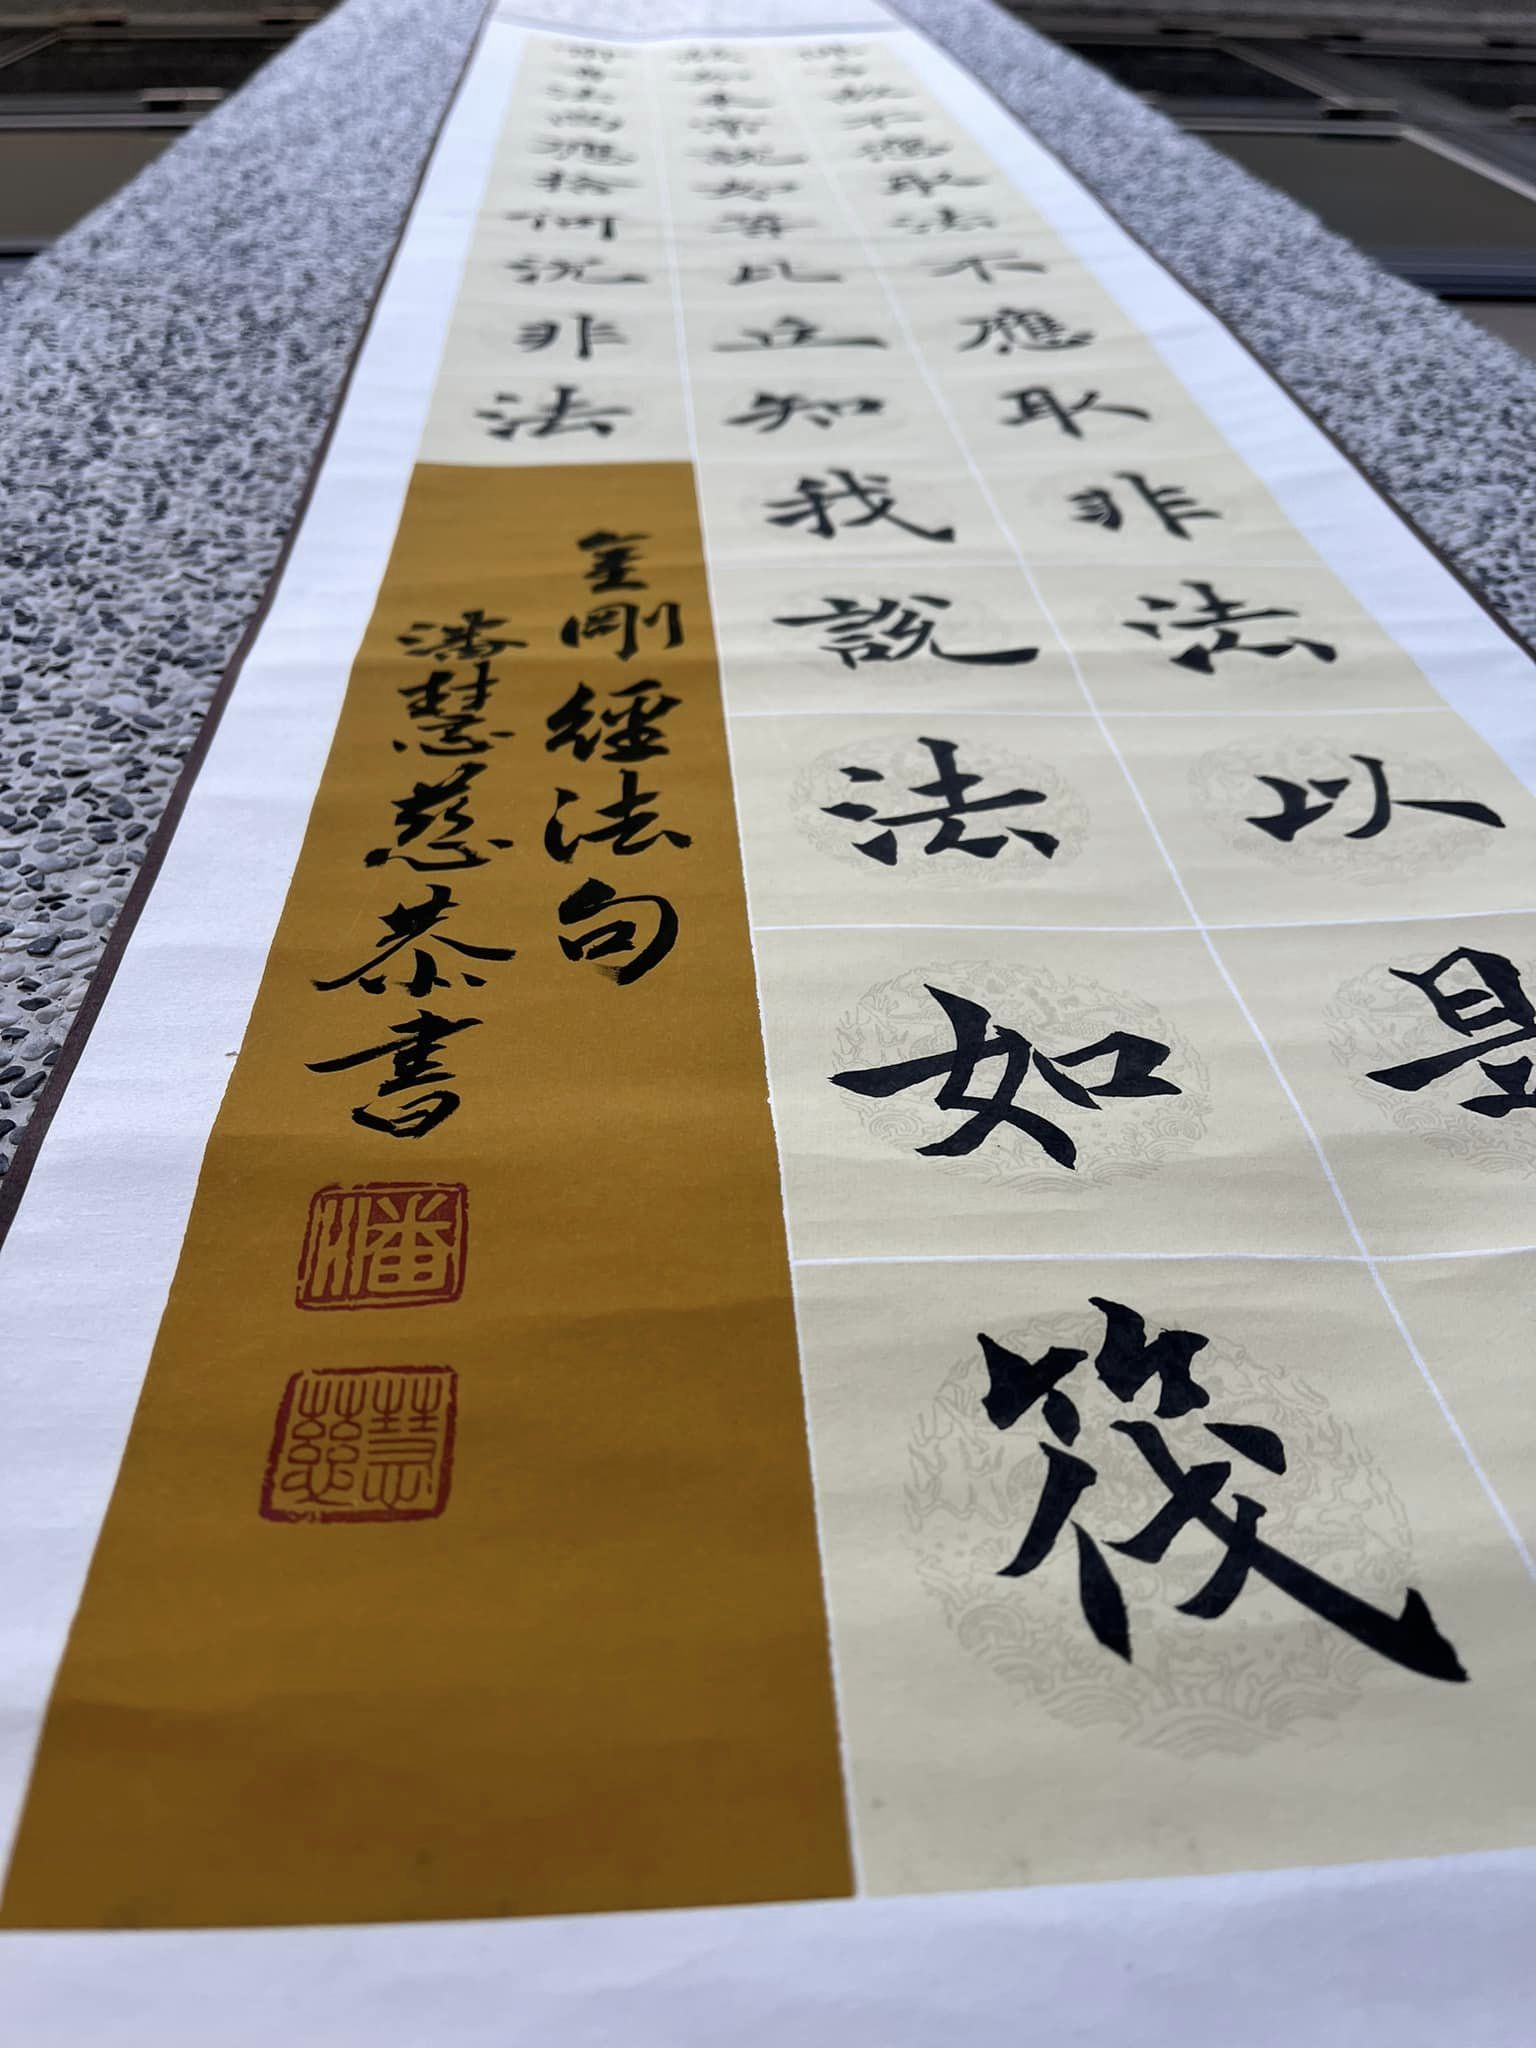 是故不應取法不應取非法以是
故如來常說汝等比丘知我說法如筏
喻者法尚應捨何況非法
金剛經法句
潘慧慈恭書
潘
慧慈